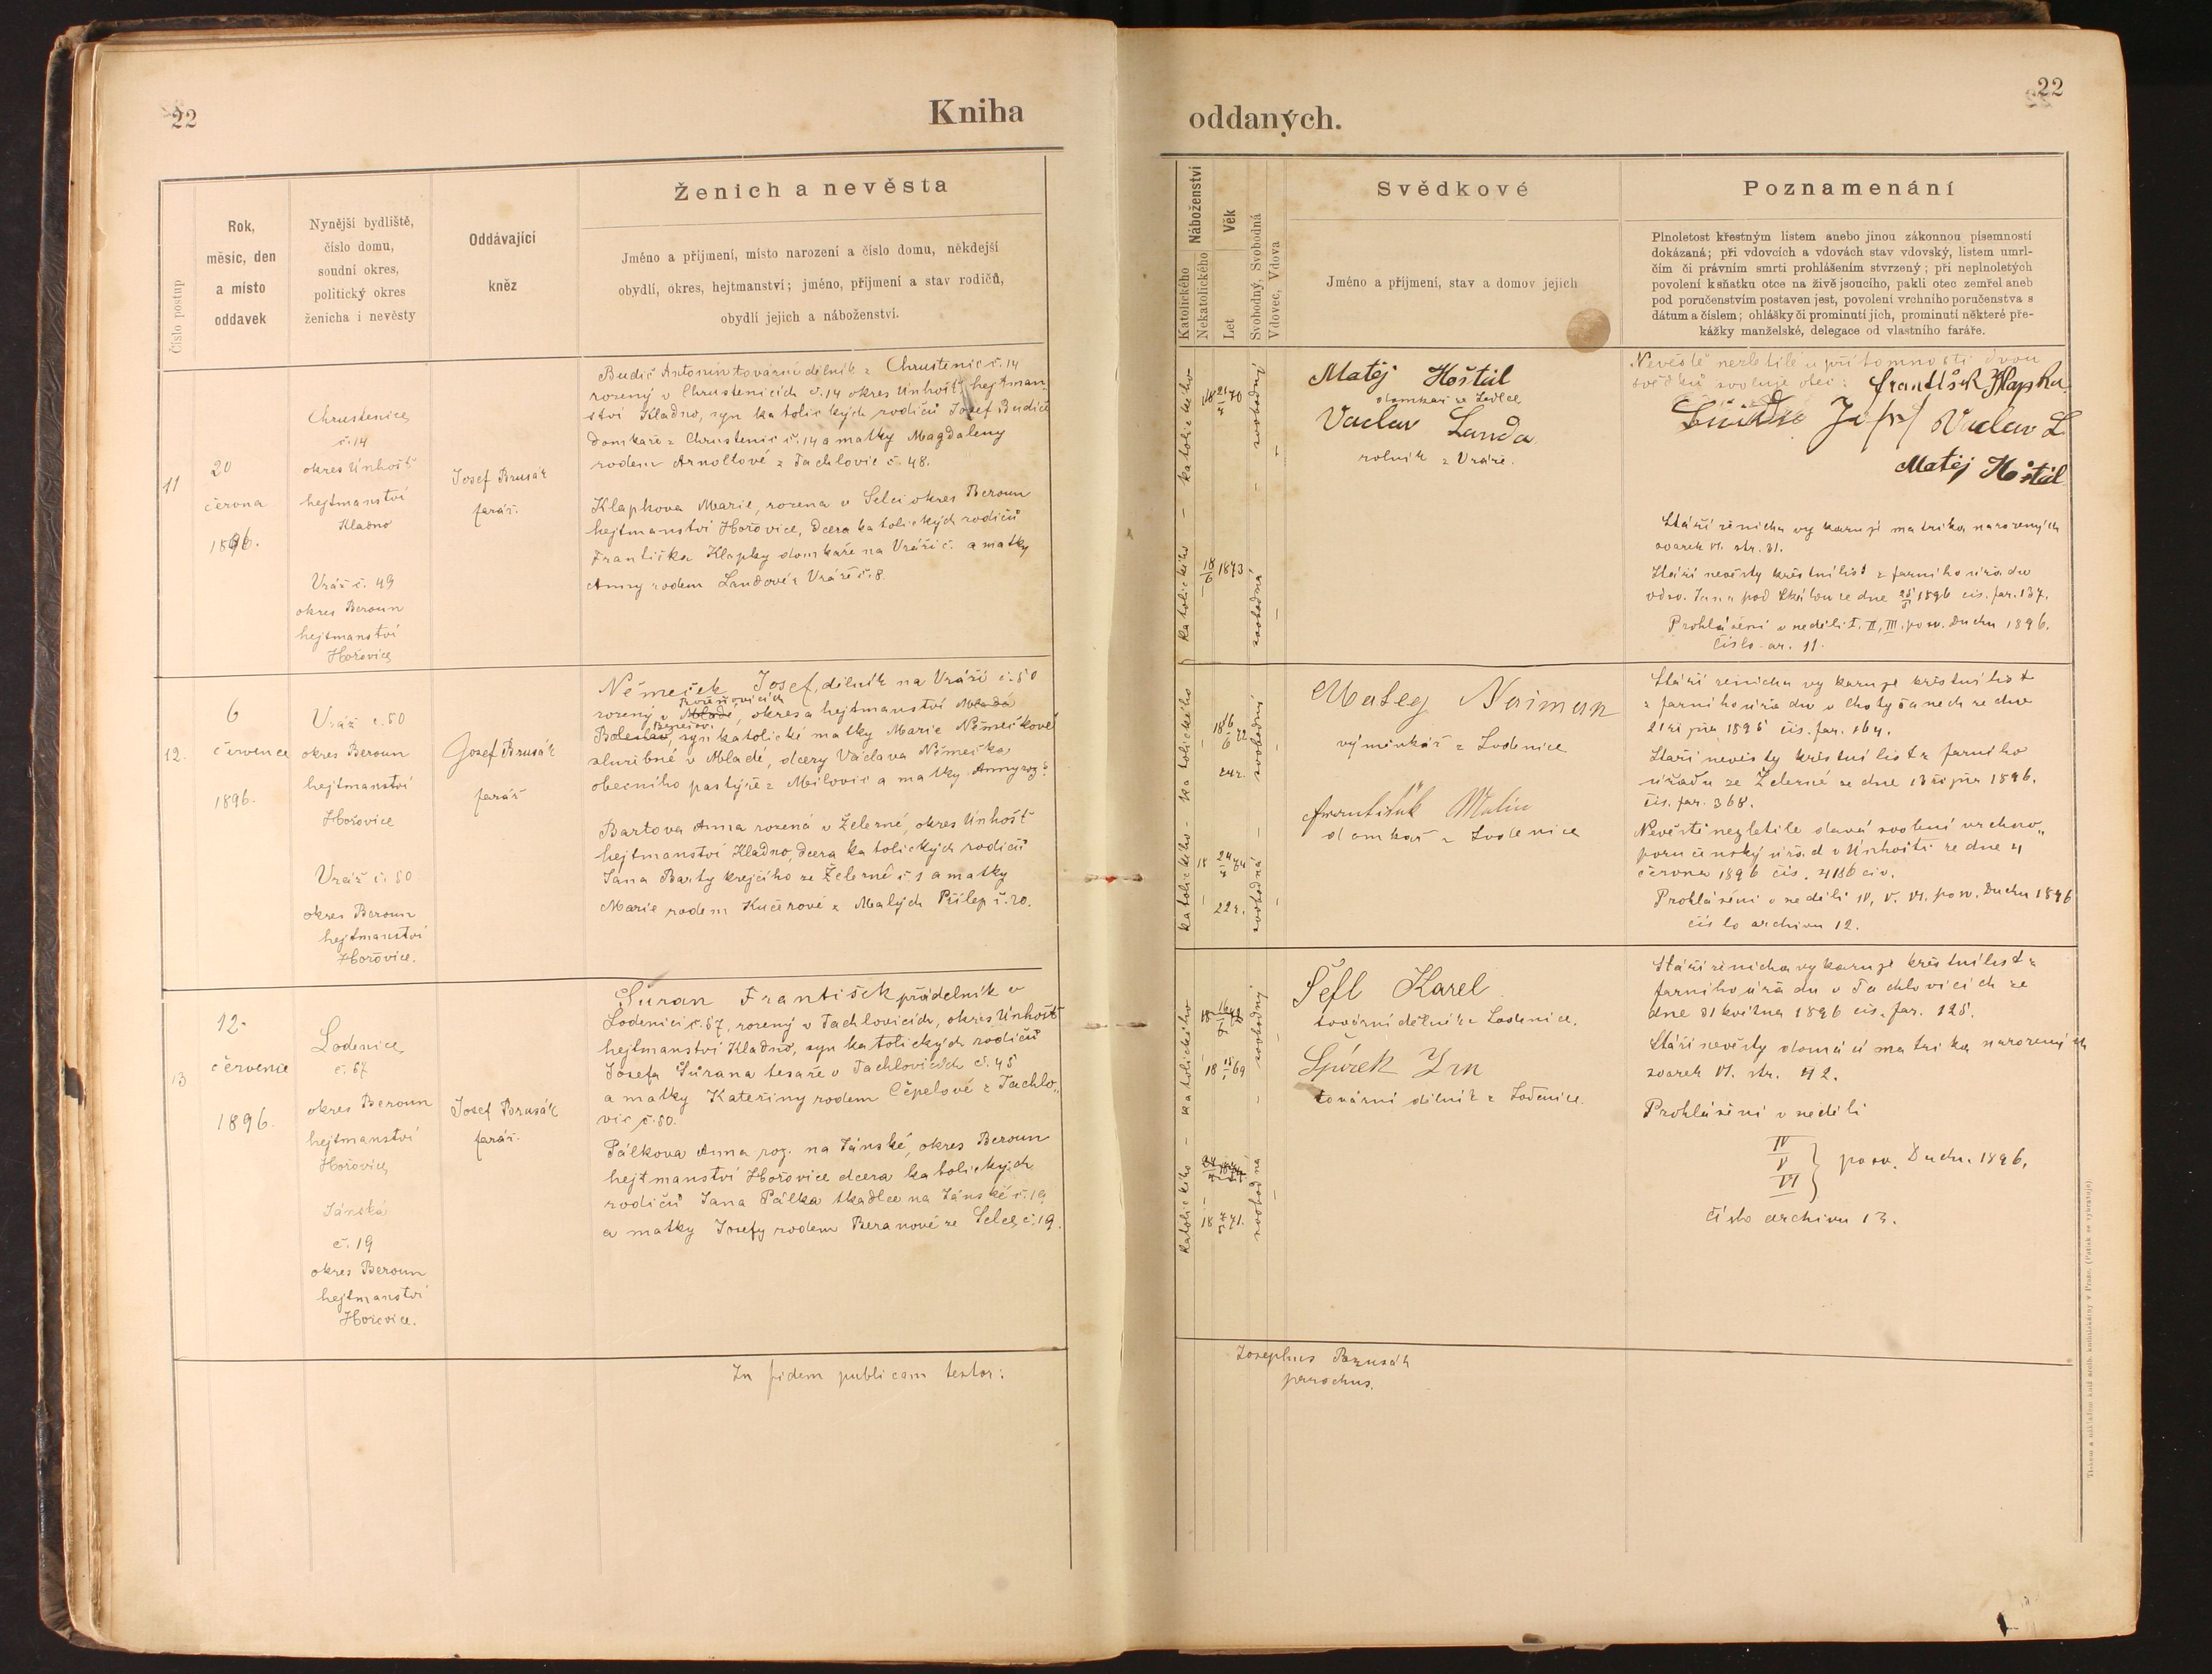 22
Kniha
Ženich a nevěsta
Číslo postup
Rok,
měsíc, den
a místo
oddavek
Nynější bydliště,
číslo domu,
soudní okres,
politický okres
ženicha i nevěsty
Oddávající
kněz
Jméno a příjmení, místo narození a číslo domu, někdejší
obydlí, okres, hejtmanství; jméno, příjmení a stav rodičů,
obydlí jejich a náboženství.
11
20
června
1896.
Chrustenice
č. 14
okres Unhošť
hejtmanství
Kladno
Vráž č. 49
okres Beroun
hejtmanství
Hořovice
Josef Brusák
farář.
Budič Antonín tovární dělník z Chrustenic č. 14
rozený v Chrustenicích č. 14 okres Unhošť hejtman
ství Kladno, syn katolických rodičů Josef Budiče
domkaře z Chrustenic č. 14 a matky Magdaleny
rodem Arnoltové z Tachlovic č. 48.
Klapkova Marie, rozena v Selci okres Beroun
hejtmanství Hořovice, dcera katolických rodičů
Františka Klapky domkaře na Vráži č. a matky
Anny rodem Landové z Vráže č. 8.
12.
6
července
1896.
Vráž č. 50
okres Beroun
hejtmanství
Hořovice
Vráž č. 50
okres Beroun
hejtmanství
Hořovice.
Josef Brusák
farář
Němeček Josef, dělník na Vráži č. 50
rozený v Mladé, okres a hejtmanství Mladá
Boleslav, syn katolické matky Marie Němečkové
služebné v Mladé, dcery Václava Němečka
obecního pastýře z Milovic a matky Anny roz.
Bartova Anna rozená v Železné, okres Unhošť
hejtmanství Kladno, dcera katolických rodičů
Jana Barty krejčího ze Železné č 1 a matky
Marie rodem Kučerové z Malých Přílep č. 20.
13
12.
července
1896.
Lodenice
č. 57
okres Beroun
hejtmanství
Hořovice
Jánská
č. 19
okres Beroun
hejtmanství
Hořovice.
Josef Brusák
farář.
Šůran František přádelník v
Lodenici č. 57, rozený v Tachlovicích, okres Unhošť
hejtmanství Kladno, syn katolických rodičů
Josefa Šůrana tesaře v Tachlovicích č. 45
a matky Kateřiny rodem Čepelové z Tachlo„
vic č. 50.
Pálkova Anna roz. na Jánské, okres Beroun
hejtmanství Hořovice dcera katolických
rodičů Jana Pálka tkadlce na Jánské č. 19
a matky Josefy rodem Beranové ze Selce č. 19.
In fidem publicam testor:
22
oddaných.
Náboženství
Katolického
Nekatolického
Věk
Let
Svobodný, Svobodná
Vdovec, Vdova
Svědkové
Jméno a příjmení, stav a domov jejich
Poznamenání
Plnoletost křestným listem anebo jinou zákonnou písemností
dokázaná; při vdovcích a vdovách stav vdovský, listem umrl-
čím či právním smrti prohlášením stvrzený; při neplnoletých
povolení k sňatku otce na živě jsoucího, pakli otec zemřel aneb
pod poručenstvím postaven jest, povolení vrchního poručenstva s
dátum a číslem; ohlášky či prominutí jich, prominutí některé pře-
kážky manželské, delegace od vlastního faráře.
katolického
svobodný
Matěj Hoštál
domkař ze Sedlce
Vaclav Landa
rolník z Vráže.
katolického
18/6 1873
svobodná
Nevěstě nezletilé u přítomnosti dvou
svědků svoluje otec: František Klapka
Josef Vaclav L
Matěj Hoštál
Stáří ženicha vykazuje matrika narozených
svazek VI. str. 31.
Stáří nevěsty křestní list z farního úřadu
v sv. Jana pod Skalou ze dne 1896 čís. far. 137.
Prohlášení v neděli I. II, III. po sv. Duchu 1896.
číslo ar. 11.
katolického
24 r.
svobodný
Matěj Naiman
výminkář z Lodenice
František Malin
domkař z Lodenice
katolického
22 r.
svobodná
Stáří ženicha vykazuje křestní list
z farního úřadu v Chotyšanech ze dne
21 října 1895 čís. far. 164.
Stáří nevěsty křestní list z farního
úřadu ze Železné ze dne 13 října 1896.
čís. far. 368.
Nevěstě nezletilé dává svolení vrchno„
poručenský úřad v Unhošti ze dne 4
června 1896 čís. 4186 civ.
Prohlášení v neděli IV, V. VI. po sv. Duchu 1896
číslo archivu 12.
katolického
svobodný
Šefl Karel
tovární dělník z Lodenice.
Špírek Jan
tovární dělník z Lodenice.
katolického
svobodná
Stáří ženicha vykazuje křestní list z
farního úřadu v Tachlovicích ze
dne 31 května 1896 čís. far. 125.
Stáří nevěsty domácí matrika narozených
svazek VI. str. 42.
Prohlášení v neděli
IV
V
VI
po sv. Duchu. 1896.
číslo archivu 13.
Josephus Brusák
parochus.